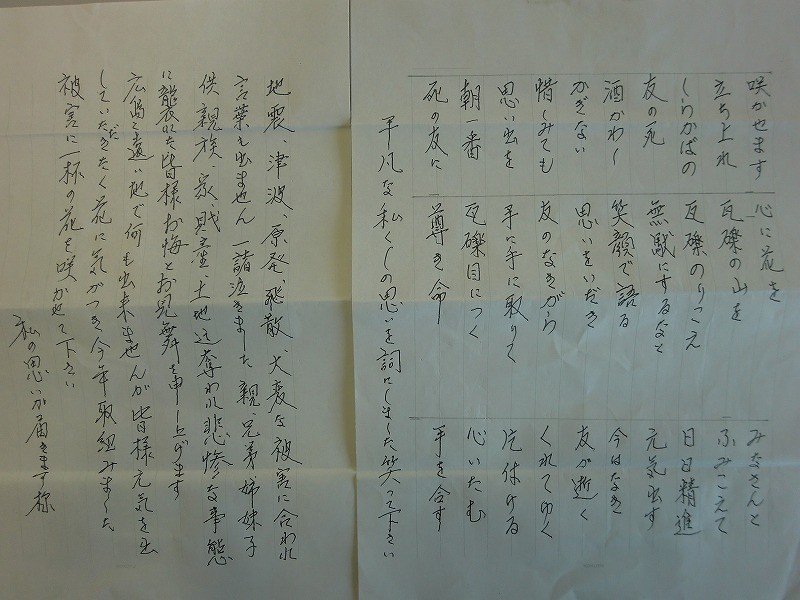 咲かせます　心に花を　みなさんと
立ち上れ　瓦礫の山を　ふみこえて
くらかばの　瓦礫のりこえ　日日精進
友の死　無駄にするなと　元気出す
酒かわし　笑顔で語る　今はなき
かぎない　思いをいだき　友が逝く
惜しみても　友のなきがら　くれてゆく
思い出を　手に手に取りて　片付ける
朝一番　瓦礫目につく　心いたむ
死の友に　尊き命　手を合す
平凡な私くしの思いを詞にしました笑って下さい
地震、津波、原発飛散、大変な被害に合われ
言葉も出ません 一諸泣きました 親、兄弟姉妹子
供親族、家、財産土地迄奪われ悲惨な事態
に襲われた皆様お悔とお見舞を申し上げます
広島と遠い地で何も出来ませんが皆様元気を出
していただきたく花に気がつき今年取組みました
被害に一杯の花を咲かせて下さい
私の思いが届きます様